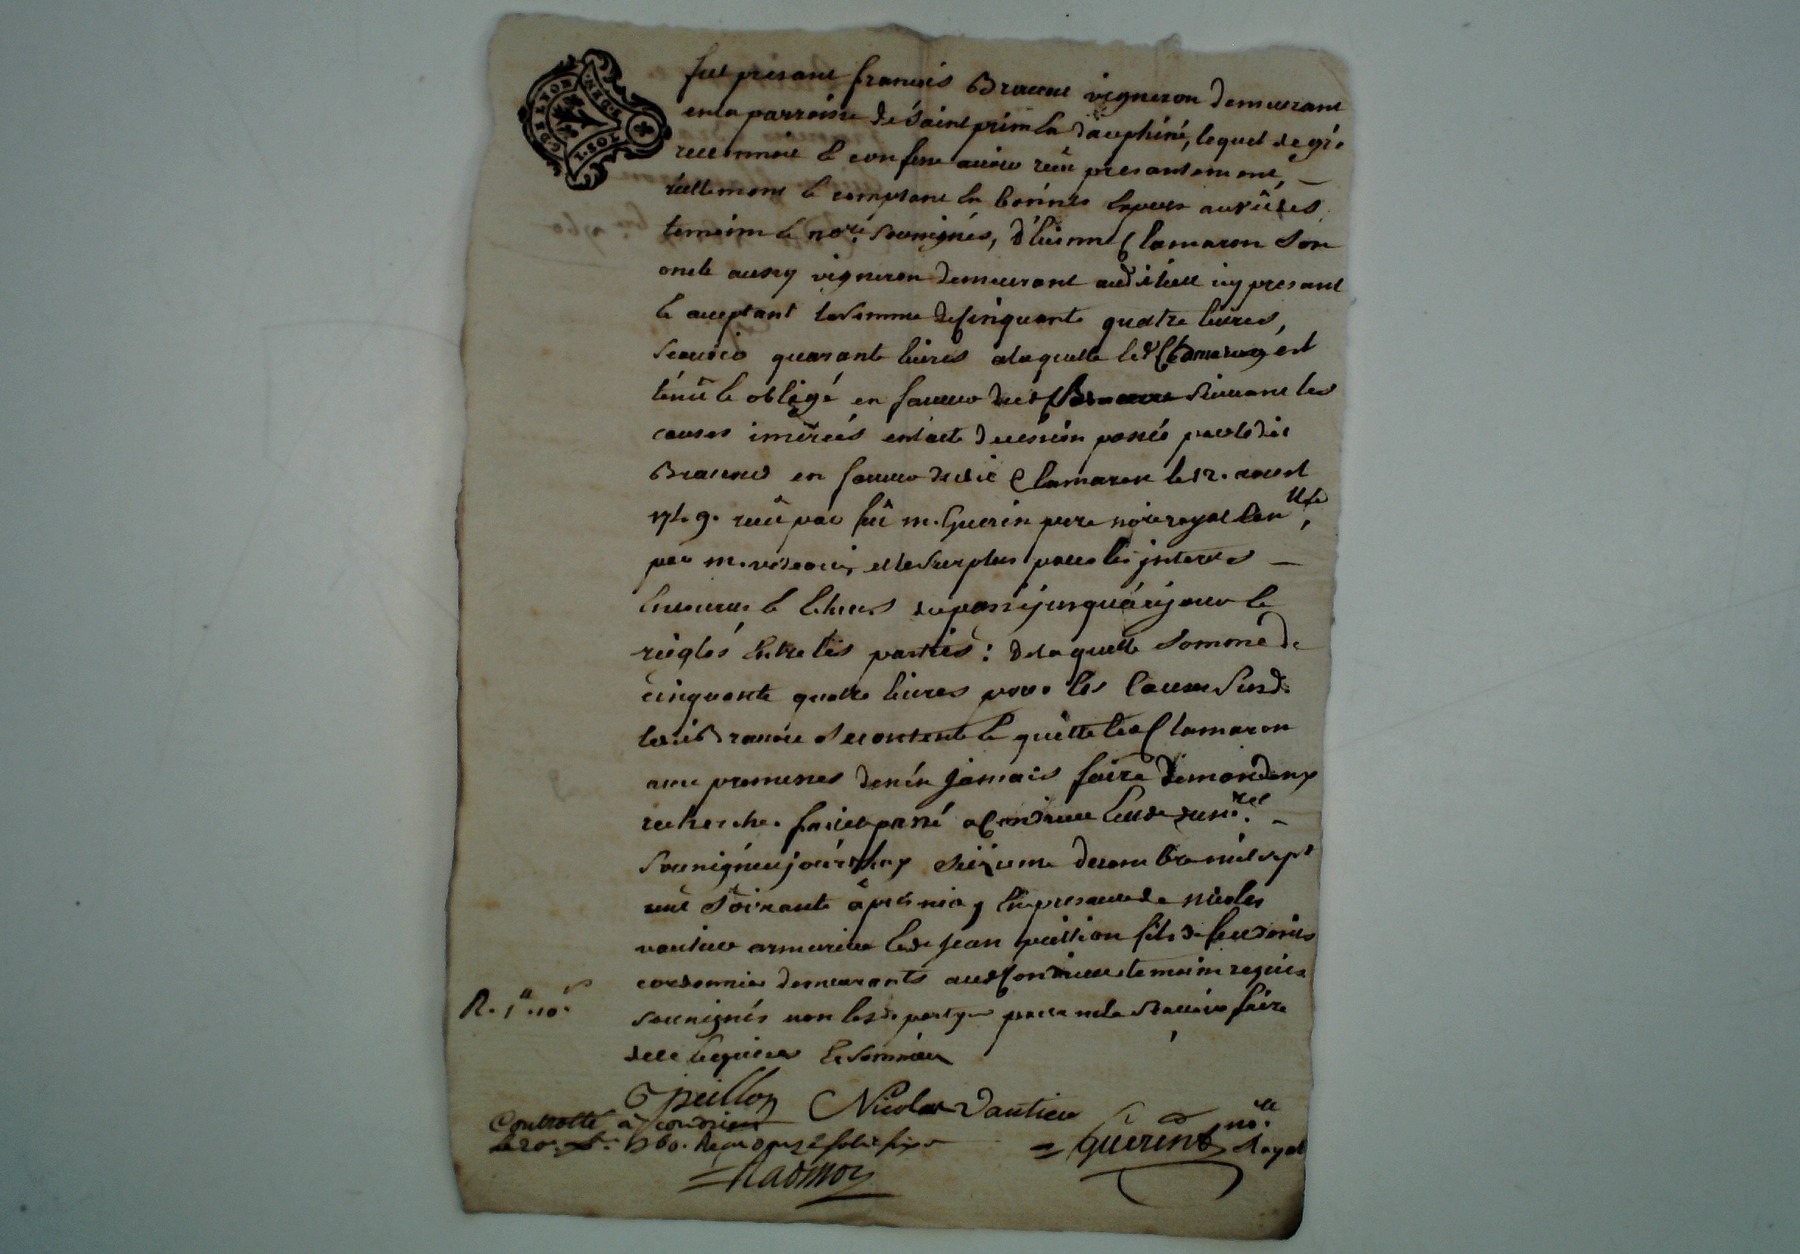 GEN. DE LYON
2. SOLS
fut present francois Bracoud vigneron demeurant
en la parroisse de saint prim en dauphiné, lequel de gré
reconnoit & confesse avoir reçu presentement, —
réellement & comptant en bonnes especes au vû des
temoins & nore. soussignés, d'Etienne Clamaron son
oncle aussy vigneron demeurant audit lieu icy present
& acceptant la somme de cinquante quatre livres,
scavoir quarante livres a laquelle led. Clamaron est
tenû & obligé en faveur dud. suivant les
causes inserées en l'acte de cession passée par ledit
en faveur dudit Clamaron le 12. aoust
1749. reçû par feû m. Guerin pere nore royal
par m. et le surplus pour les interets —
encourus & echus du passé jusqu'à ce jour &
reiglés entre les parties: de laquelle somme de
cinquante quatre livres pour les causes susd.
led. se contente & quitte led. Clamaron
avec promesses de n'en jamais faire demande ny
recherche. fait et passé a Condrieu etude du nore. —
soussigné ce jourd'huy seizieme decembre mil sept
cent soixante après midy en presence de nicolas
vautier armurier & de jean peillon fils de feu denis
cordonnier demeurants aud. Condrieu temoins requis
soussignés non les d. partyes pour ne le scavoir faire
de ce enquises & sommées
R. 1ll. 10s.
Jpeillon Nicolas Vautier
Controllé à Condrieu
le 20. xbre. 1760. Reçu douze sols six d.
= Guerin nore. Royal